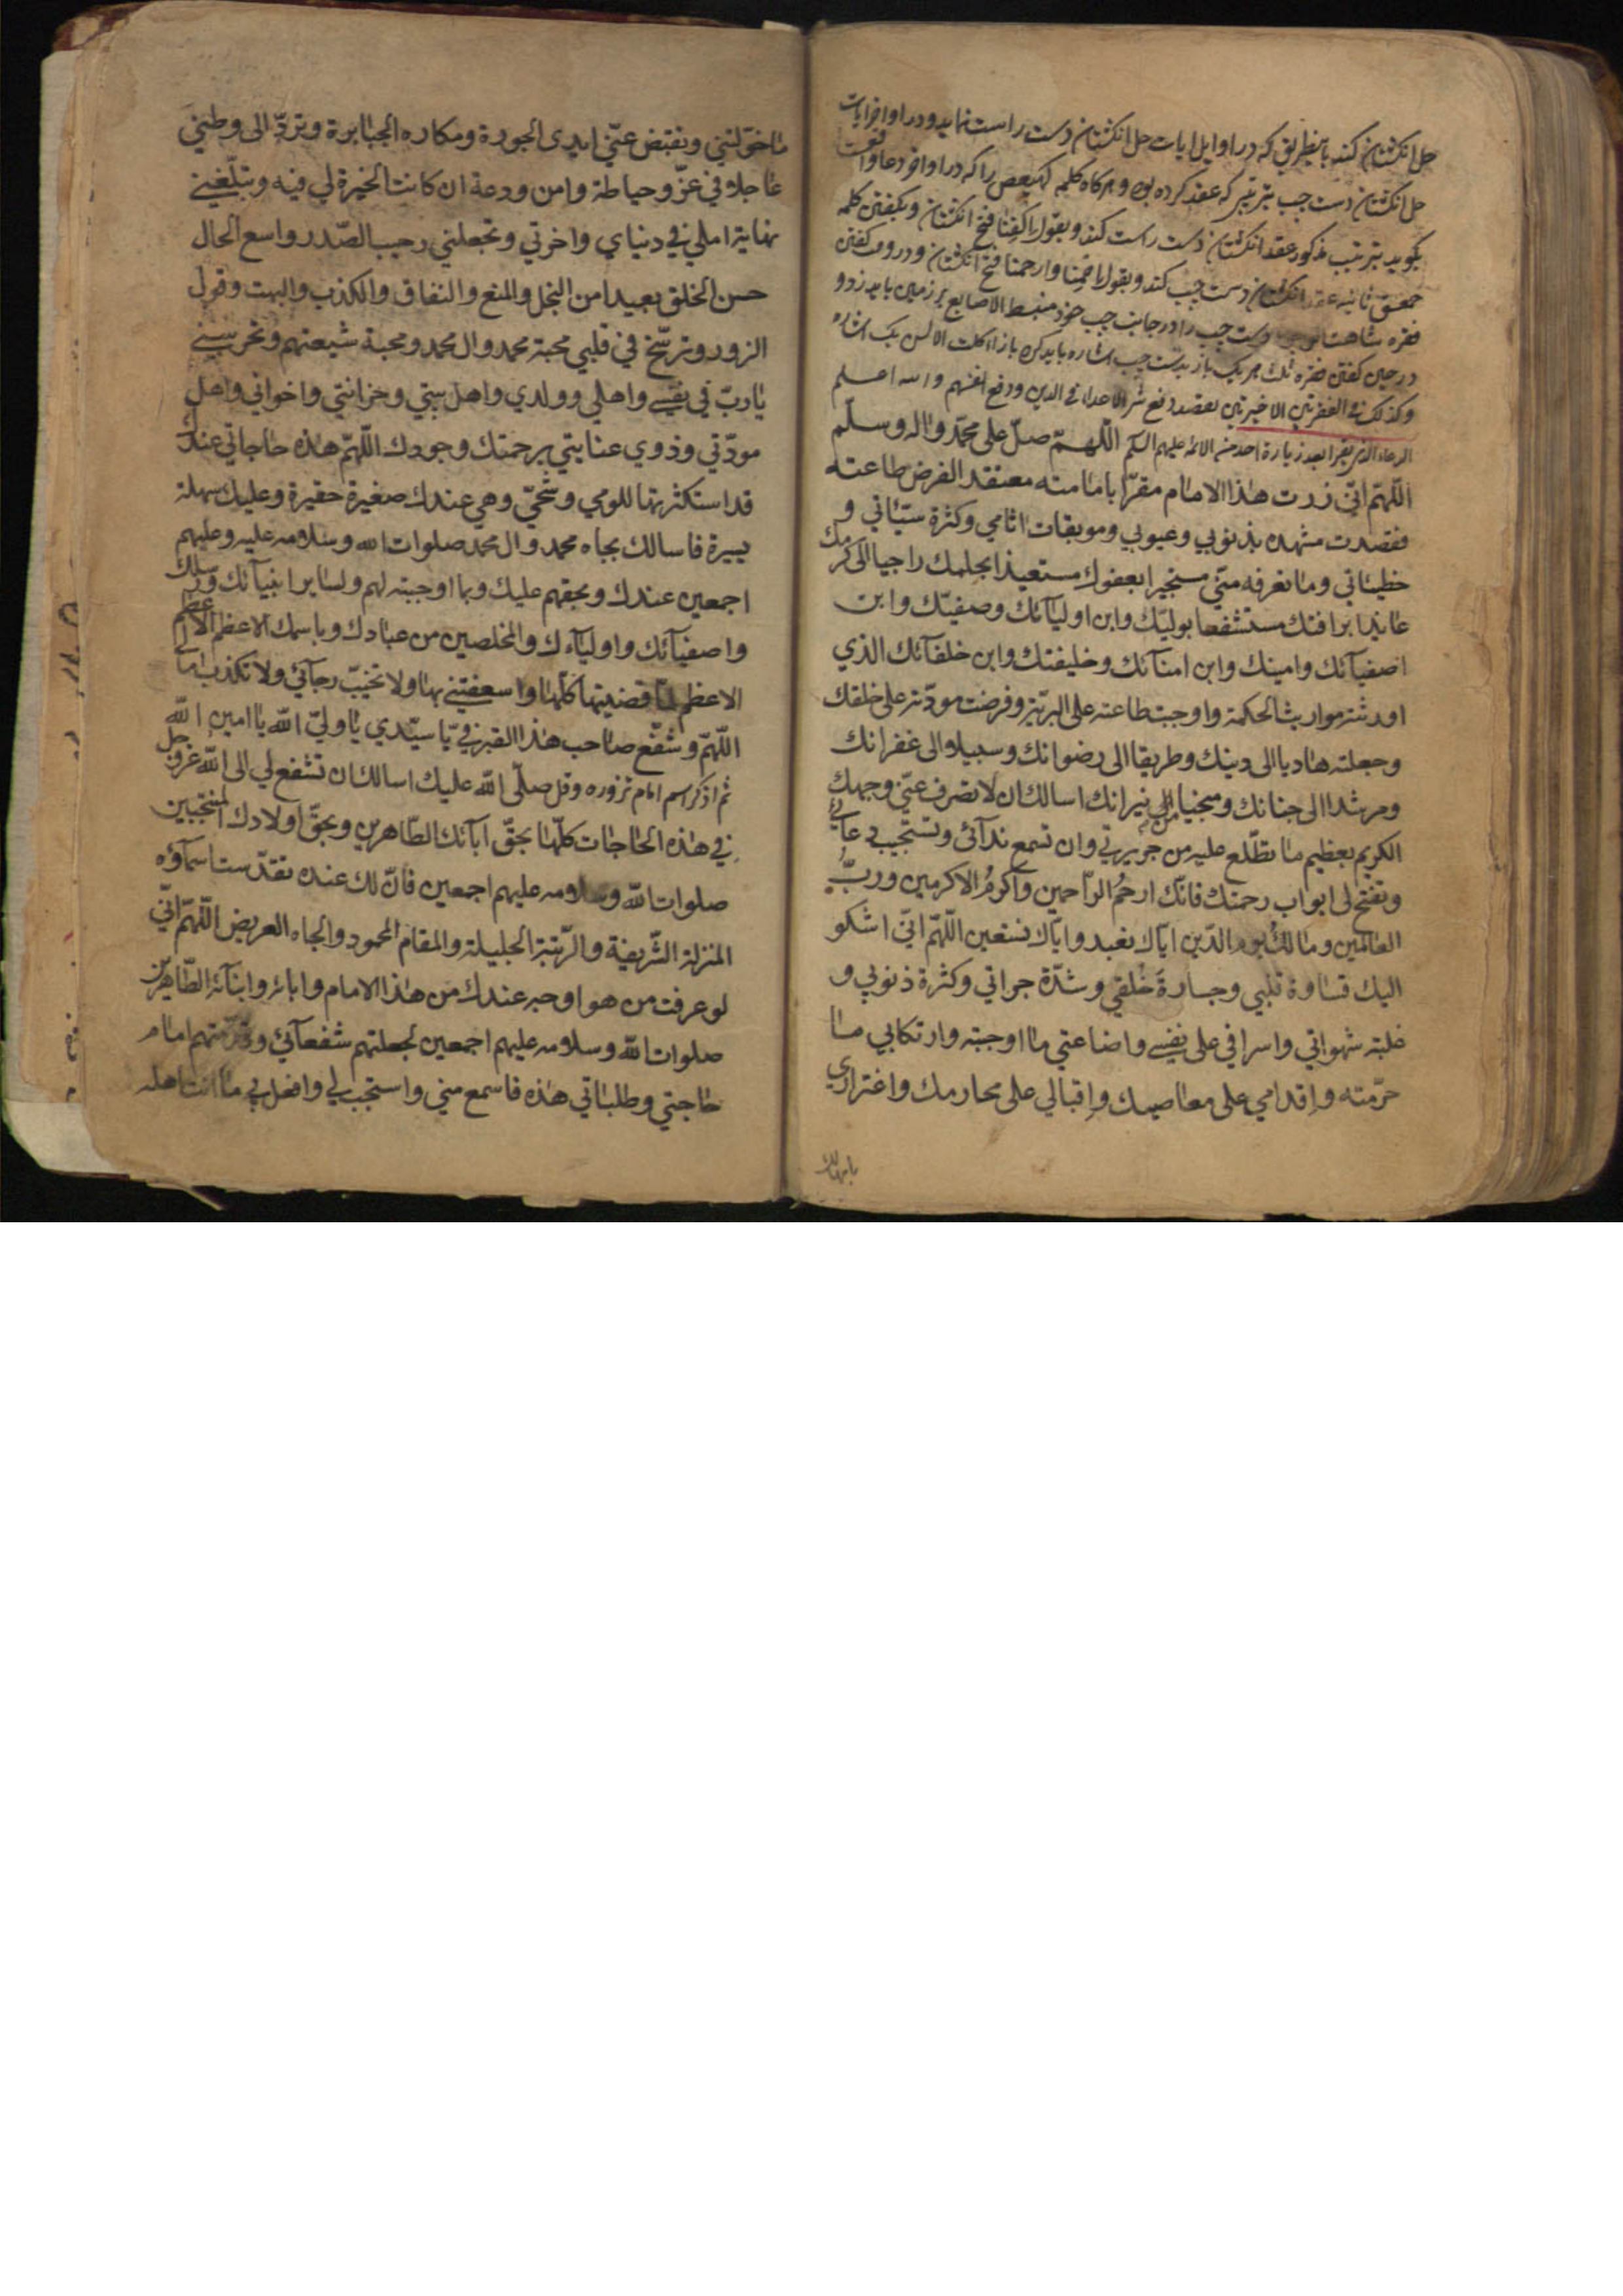 حل انکشتان کند باینطریق که در اوایل ایات حل انکشتان دست راست نماید و در اواخر ایات
حل انکشتان دست چپ بترتیبی که عقد کرده بود و هرکاه کلمه کهیعص را که در اواخر دعا واقعست
بکوید بترتیب مذکور عقد انکشتان دست راست کند و بقول اکفنا فتح انکشتان و بکفتن کلمه
حمعسق ثانیه عقد انکشتان دست چپ کند و بقول وارحمنا فتح انکشتان و در وقت کفتن
فقره شاهت دست چپ را در جانب چپ خود منبسط الاصابع بر زمین باید زد و
در حین کفتن فقره بدست چپ اشاره باید کرد باز
وکذلک فی الفقرتین الاخیرتین بقصد دفع شر الاعداء فی الدین ودفع انفسهم والله اعلم
الدعاء الذی یقرا بعد زیارة احد من الائمه علیهم السلم اللّهمّ صلّ علی محمّد واله وسلّم
اللّهمّ انّی زرت هذا الامام مقرّا بامامته معتقد الفرض طاعته
فقصدت مشهده بذنوبی وعیوبی وموبقات اثامی وکثرة سیّئاتی و
خطیئاتی وما تعرفه منّی مستجیرا بعفوك مستعیذا بحلمك راجیا الی کرمك
عائذا برافتك مستشفعا بولیّك وابن اولیائك وصفیّك وابن
اصفیآئك وامینك وابن امنآئك وخلیفتك وابن خلفآئك الذی
اورثته مواریث الحکمة واوجبت طاعته علی البریّة وفرضت مودّته علی خلقك
وجعلته هادیا الی دینك وطریقا الی رضوانك وسبیلا الی غفرانك
ومرشدا الی جنانك ومنجیا من نیرانك اسالك ان لا تصرف عنّی وجهك
الکریم بعظیم ما تطّلع علیه من جریرتی وان تسمع ندآئی وتستجیب دعآئی
وتفتح لی ابواب رحمتك فانّك ارحمُ الرّاحمین واکرمُ الاکرمین وربّ
العالمین ومالك یوم الدّین ایّاك نعبد وایّاك نستعین اللّهمّ انّی اشکو
الیك قساوة قلبی وجسارةَ خُلقی وشدّة جراتی وکثرة ذنوبی و
غلبة شهواتی واسرافی علی نفسی واضاعتی ما اوجبته وارتکابی ما
حرّمته وإقدامی علی معاصیك وإقبالی علی محارمك واغتراری
بامهالك
ما خوّلتنی وتقبض عنّی ایدی الجورة ومکاره الجبابرة وتردّ الی وطنی
عاجلا فی عزّ وحیاطة وامن ودعة ان کانت الخیرة لی فیه وتبلّغنی
نهایة املی فی دنیای واخرتی وتجعلنی رحیب الصّدر واسع الحال
حسن الخلق بعیدا من البخل والمنع والنفاق والکذب والبهت وقول
الزور وترسّخ فی قلبی محبة محمد وال محمد ومحبة شیعتهم وتحرسنی
یا ربّ فی نفسی واهلی وولدی واهل بیتی وخزانتی واخوانی واهل
مودّتی وذوی عنایتی برحمتك وجودك اللّهمّ هذه حاجاتی عندك
قد استکثرتها للومی وشحّی وهی عندك صغیرة حقیرة وعلیك سهلة
یسیرة فاسالك بجاه محمد وال محمد صلوات الله وسلامه علیه وعلیهم
اجمعین عندك وبحقهم علیك وبما اوجبته لهم ولسایر انبیآئك ورسلك
واصفیآئك واولیآءك والمخلصین من عبادك وباسمك الاعظم الاعظم
الاعظم لمّا قضیتها کلّها واسعفتنی بها ولا تخیّب رجآئی ولا تکذب امالی
اللّهمّ وشفّع صاحب هذا القبر فیّ یا سیّدی یا ولیّ الله یا امین الله
ثم اذکر اسم امام تزوره وقل صلّی الله علیك اسالك ان تشفع لی الی الله عزّ وجل
فی هذه الحاجات کلّها بحقّ آبآئك الطّاهرین وبحقّ اولادك المنتجبین
صلوات الله وسلامه علیهم اجمعین فانّ لك عنده تقدّست اسمآؤه
المنزلة الشّریفة والرّتبة الجلیلة والمقام المحمود والجاه العریض اللّهمّ انّی
لو عرفت من هو اوجه عندك من هذا الامام وابائه وابنآئه الطّاهرین
صلوات الله وسلامه علیهم اجمعین لجعلتهم شفعآئی وقدّمتهم امام
حاجتی وطلباتی هذه فاسمع منی واستجب لی وافعل بی ما انت اهله